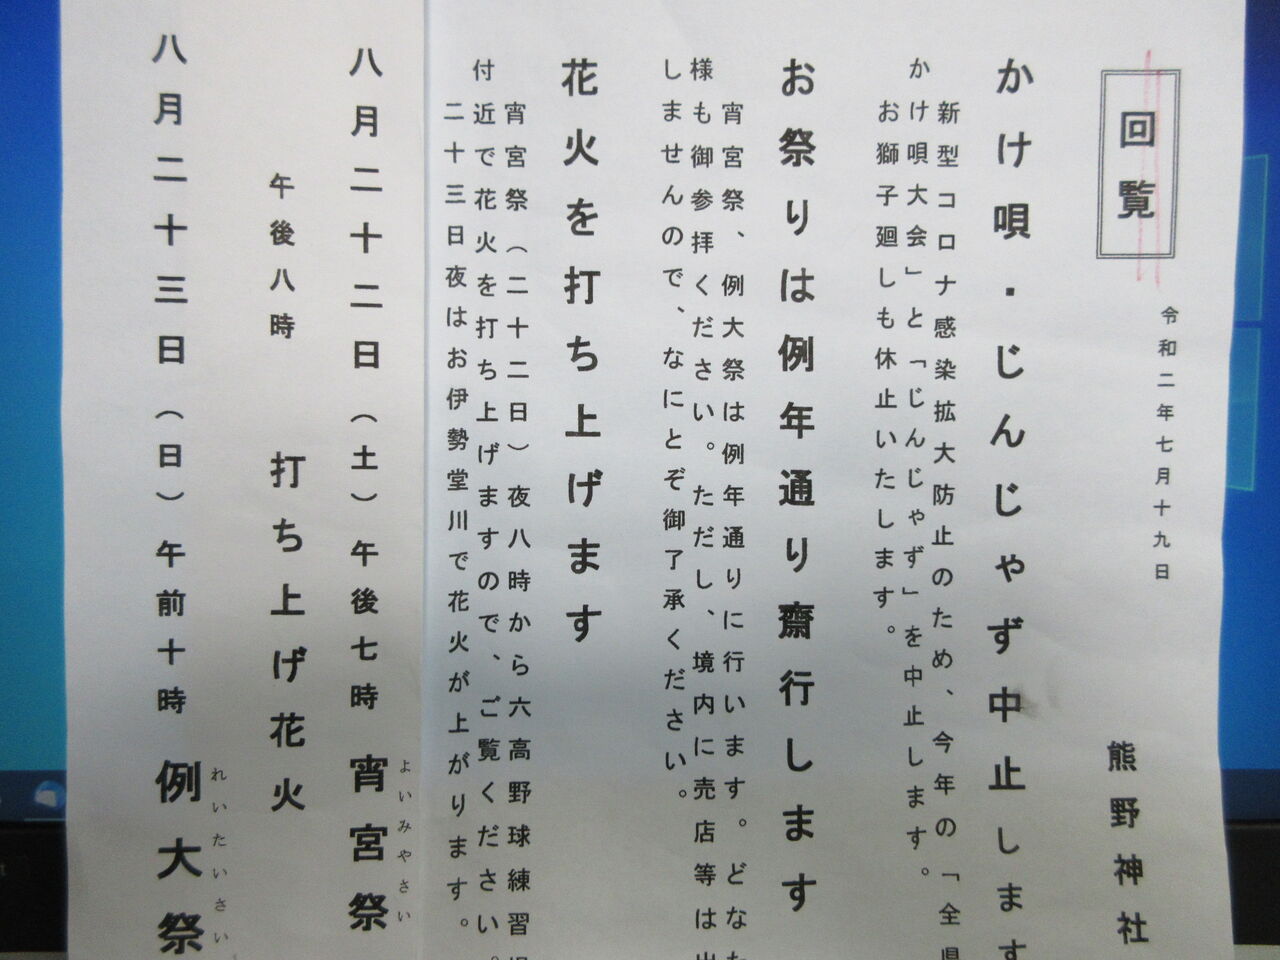 回覧
令和二年七月十九日
熊野神社
かけ唄・じんじゃず中止します
新型コロナ感染拡大防止のため、今年の「全県
かけ唄大会」と「じんじゃず」を中止します。
お獅子廻しも休止いたします。
お祭りは例年通り齋行します
宵宮祭、例大祭は例年通りに行います。どなた
様も御参拝ください。ただし、境内に売店等は出
しませんので、なにとぞ御了承ください。
花火を打ち上げます
宵宮祭(二十二日)夜八時から六高野球練習場
付近で花火を打ち上げますので、ご覧ください。
二十三日夜はお伊勢堂川で花火が上がります。
八月二十二日(土)午後七時 宵宮祭
よいみやさい
午後八時 打ち上げ花火
八月二十三日(日)午前十時 例大祭
れいたいさい